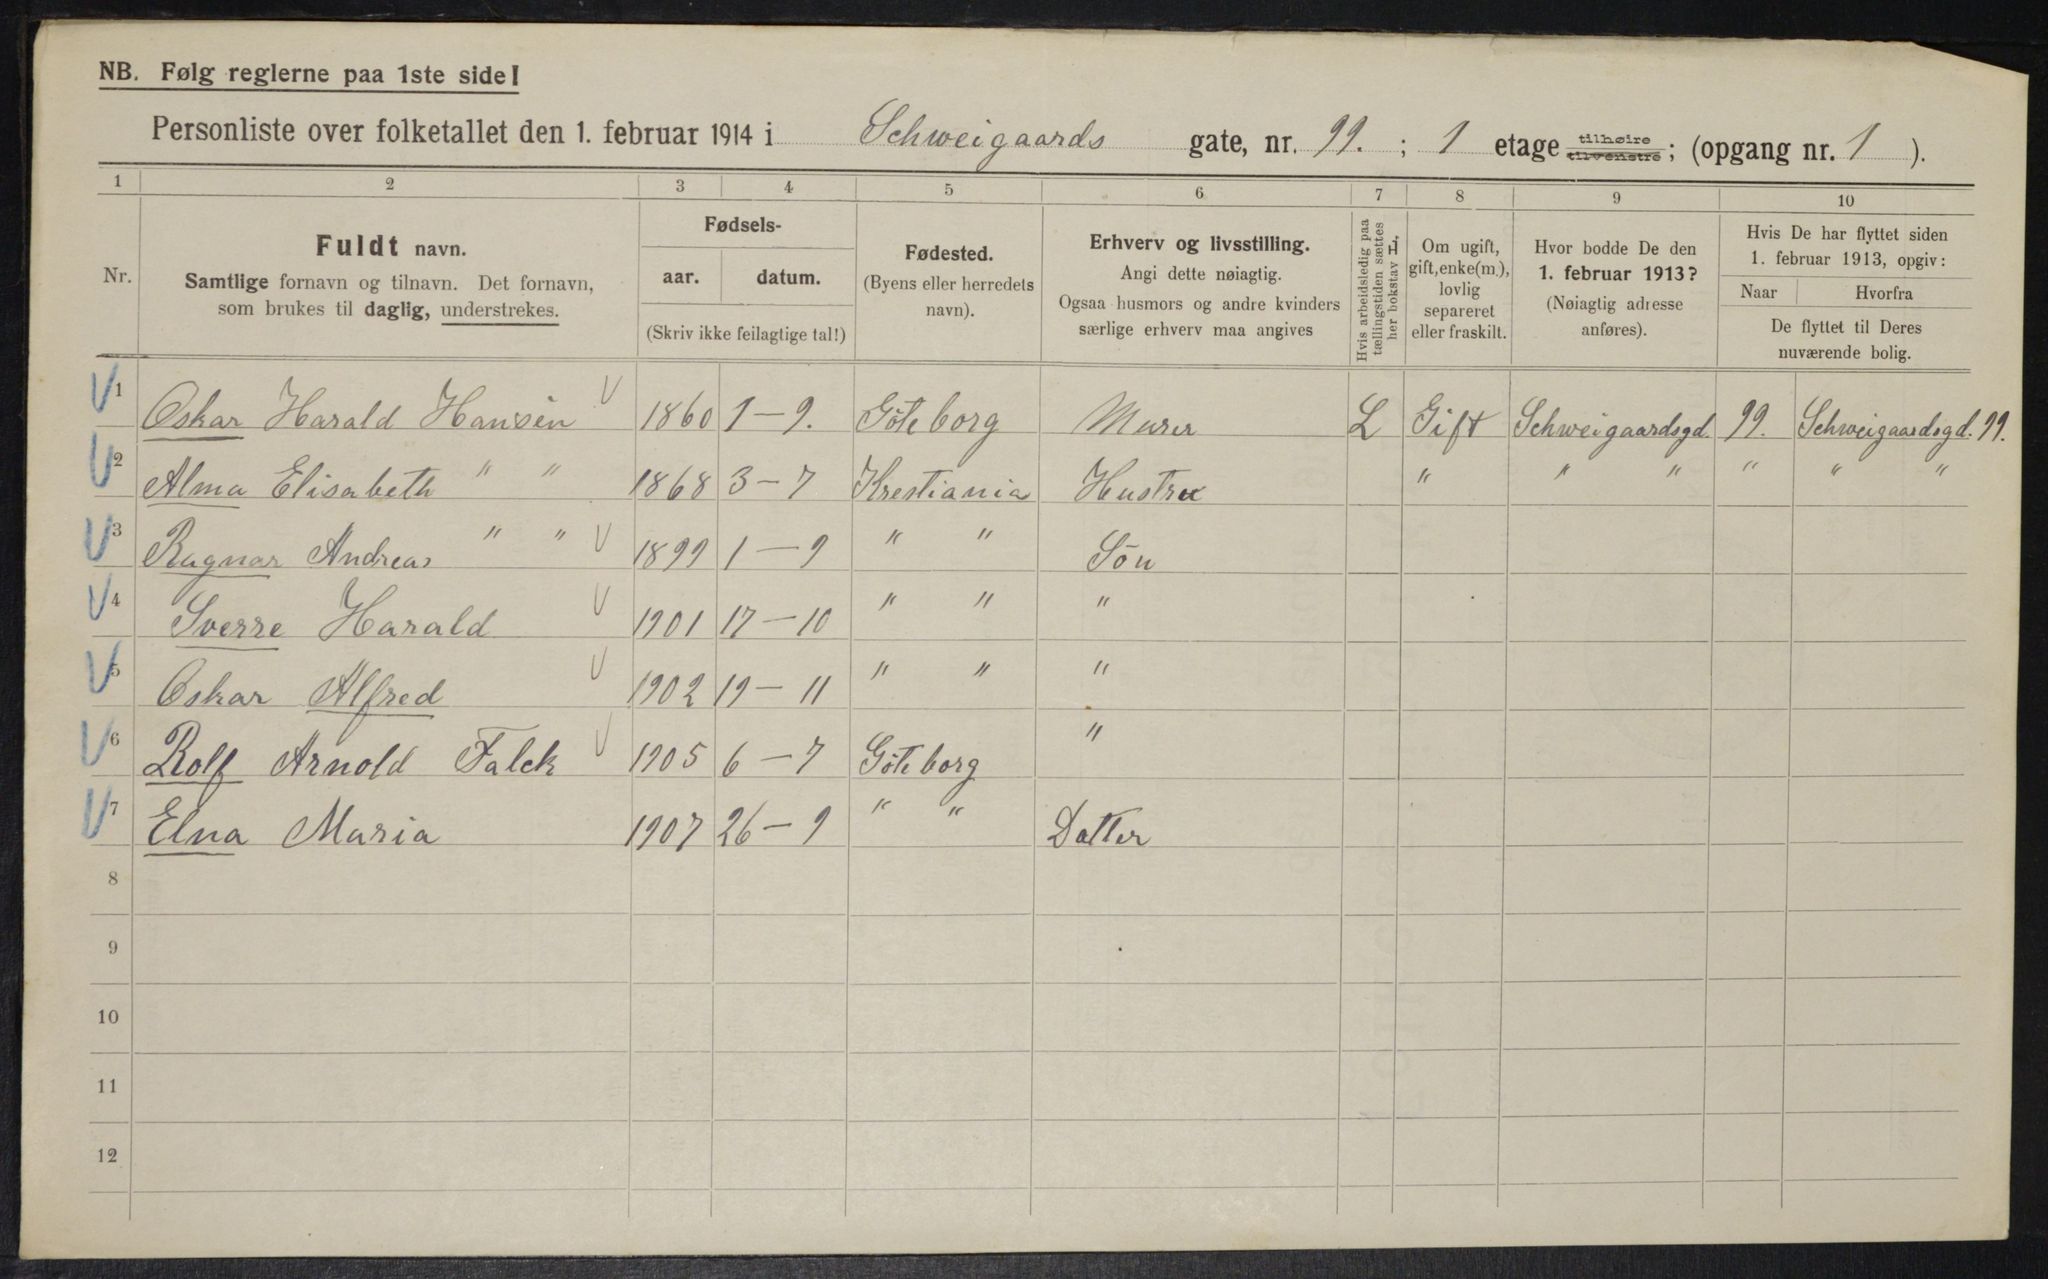 NB. Følg reglerne paa 1ste side!
Personliste over folketallet den 1. februar 1914 i Schweigaards gate, nr. 99. ; 1 etage tilhøire tilvenstre ; (opgang nr. 1 ).
1 2 3 4 5 6 7 8 9 10
Nr.
Fuldt navn.
Samtlige fornavn og tilnavn. Det fornavn,
som brukes til daglig, understrekes.
Fødsels-
aar. datum.
(Skriv ikke feilagtige tal!)
Fødested.
(Byens eller herredets
navn).
Erhverv og livsstilling.
Angi dette nøiagtig.
Ogsaa husmors og andre kvinders
særlige erhverv maa angives
Hvis arbeidsledig paa
tællingstiden sættes
her bokstav L,
Om ugift,
gift, enke(m.),
lovlig
separeret
eller fraskilt.
Hvor bodde De den
1. februar 1913?
(Nøiagtig adresse
anføres).
Hvis De har flyttet siden
1. februar 1913, opgiv:
Naar Hvorfra
De flyttet til Deres
nuværende bolig.
1 Oskar Harald Hansen V 1860 1 – 9. Göteborg Murer L Gift Schweigaardsgd. 99. Schweigaardsgd. 99.
2 Alma Elisabeth " " 1868 3 – 7 Krestiania Hustru " " " " " "
3 Ragnar Andreas " " V 1899 1 – 9 " " Sön
4 Sverre Harald V 1901 17 – 10 " " "
5 Oskar Alfred V 1902 19 – 11 " " "
6 Rolf Arnold Falck V 1905 6 – 7 Göteborg "
7 Elna Maria 1907 26 – 9 " " Datter
8
9
10
11
12